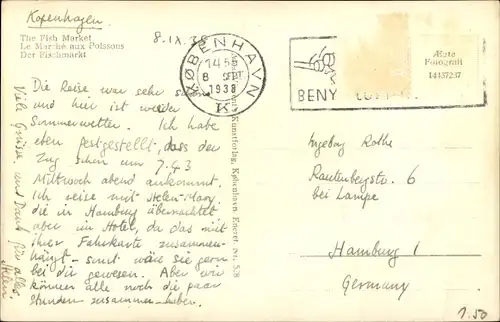 Kopenhagen.
8.IX.38
The Fish Market
Le Marché aux Poissons
Der Fischmarkt
KØBENHAVN
8 SEPT
1938
K
BENY
Ægte
Fotografi
14437237
Die Reise war sehr schön
und hier ist wieder
Sommerwetter. Ich habe
eben festgestellt, dass der
Zug schon um 7.43
Mittwoch abend ankommt.
Ich reise mit Helen-Mary,
die in Hamburg übernachtet
aber im Hotel, da das mit
ihrer Fahrkarte zusammen-
hängt - sonst wäre sie gern
bei dir gewesen. Aber wir
können alle noch die paar
Stunden zusammen haben.
Viele Grüsse und Dank für alles,
Helen
Kunstforlag, København. Eneret. Nr. 58
Ingeborg Rothe
Rautenbergstr. 6
bei Lampe
Hamburg 1
Germany
1.50